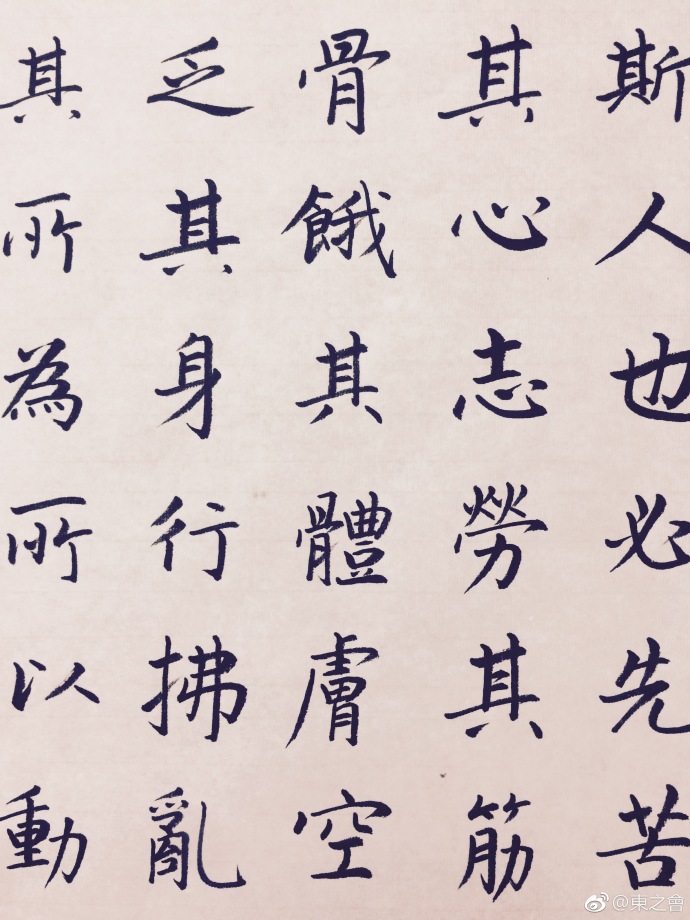 斯人也必先苦
其心志勞其筋
骨餓其體膚空
乏其身行拂亂
其所為所以動
@東之會